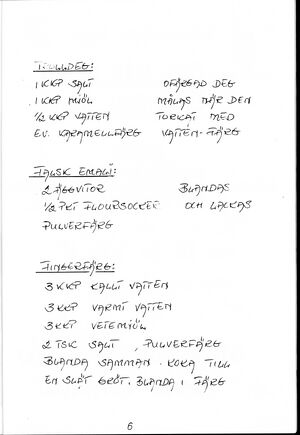 TROLLDEG:
1 KKP SALT OFÄRGAD DEG
1 KKP MJÖL MÅLAS NÄR DEN
1/2 KKP VATTEN TORKAT MED
EV. KARAMELLFÄRG VATTEN-FÄRG
FALSK EMALJ:
2 ÄGGVITOR BLANDAS
1/2 PKT FLOURSOCKER OCH LACKAS
PULVERFÄRG
FINGERFÄRG:
3 KKP KALLT VATTEN
3 KKP VARMT VATTEN
3 KKP VETEMJÖL
2 TSK SALT, PULVERFÄRG
BLANDA SAMMAN. KOKA TILL
EN SLÄT GRÖT. BLANDA I FÄRG
6